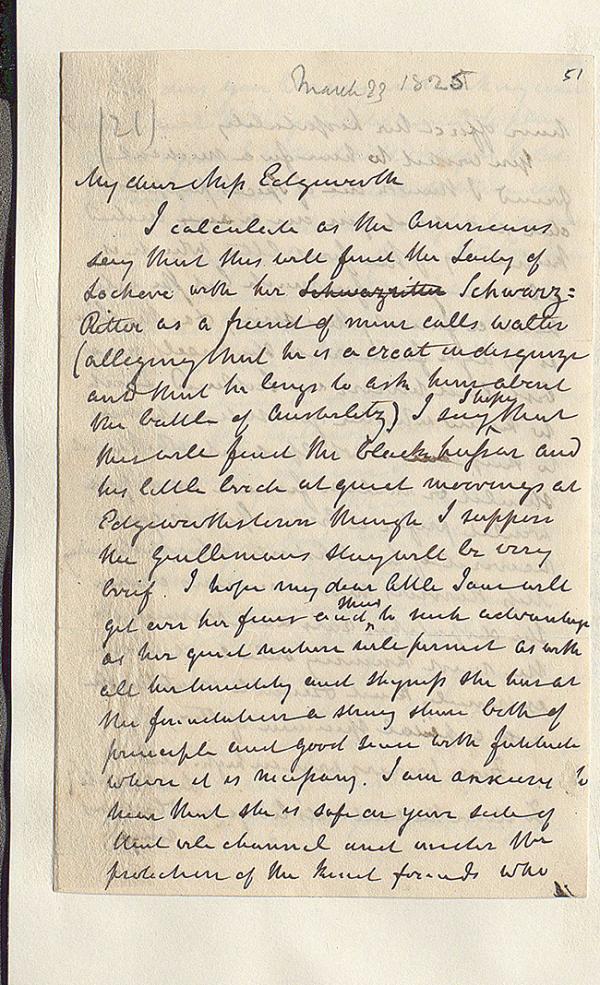 March 23 1825
51
(21)
My dear Miss Edgeworth
I calculate as the Americans
say that this will find the Lady of
Lochore with her Schwazritter Schwarz=
Ritter as a friend of mine calls Walter
(alledging that he is a croat in disguize
and that he longs to ask him about
the battle of Austerlitz) I say I hope that
this will find the black hussar and
his little bride at quiet moorings at
Edgeworthstown though I suppose
the gentlemans stay will be very
brief. I hope my dear little Jane will
get over her fears and thus to such advantage
as her quiet nature will permit as with
all her timidity and shyness she has at
the foundation a strong share both of
principle and good sense with fortitude
where it is necessary. I am anxious to
hear that she is safe on your side of
that vile channel and under the
protection of the kind friends who